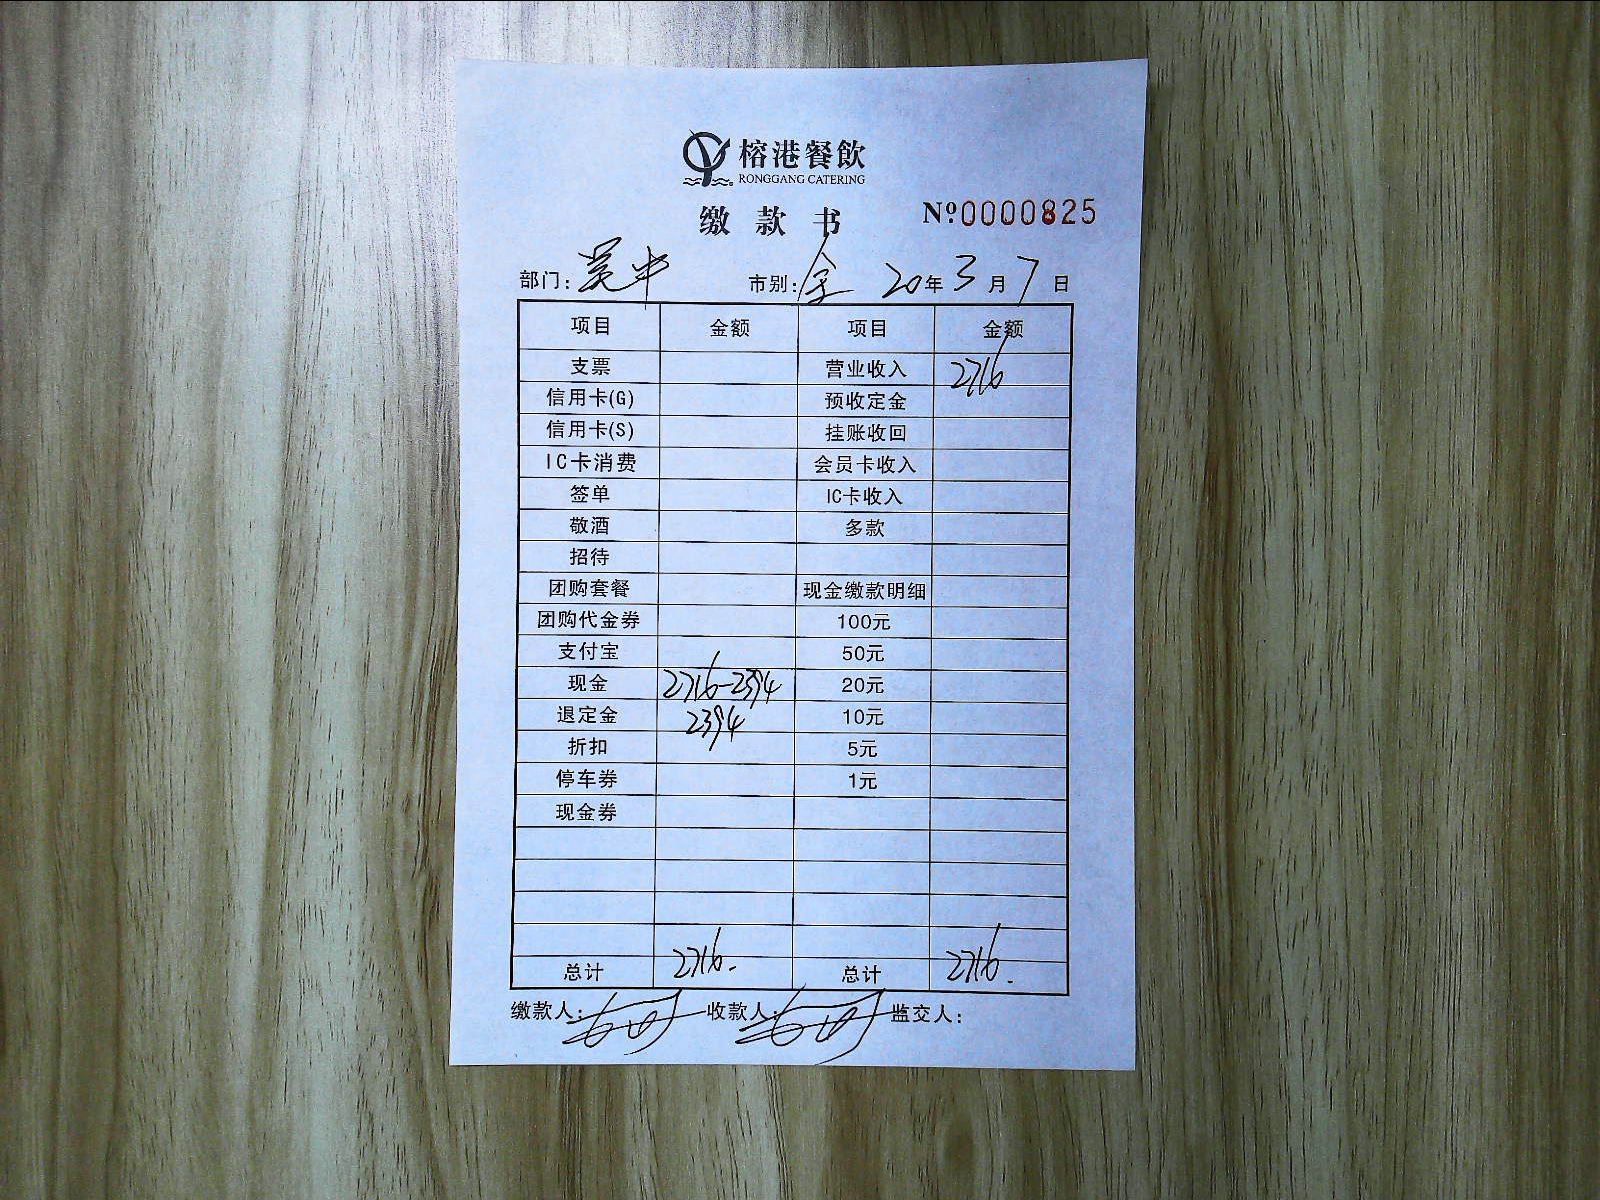 榕港餐飲
RONGGANG CATERING
缴款书 Nº0000825
部门：吴中 市别：全 20年3月7日
项目 金额 项目 金额
支票 营业收入 2716
信用卡(G) 预收定金
信用卡(S) 挂账收回
IC卡消费 会员卡收入
签单 IC卡收入
敬酒 多款
招待
团购套餐 现金缴款明细
团购代金券 100元
支付宝 50元
现金 2716-2394 20元
退定金 2394 10元
折扣 5元
停车券 1元
现金券
总计 2716. 总计 2716.
缴款人： 收款人： 监交人：